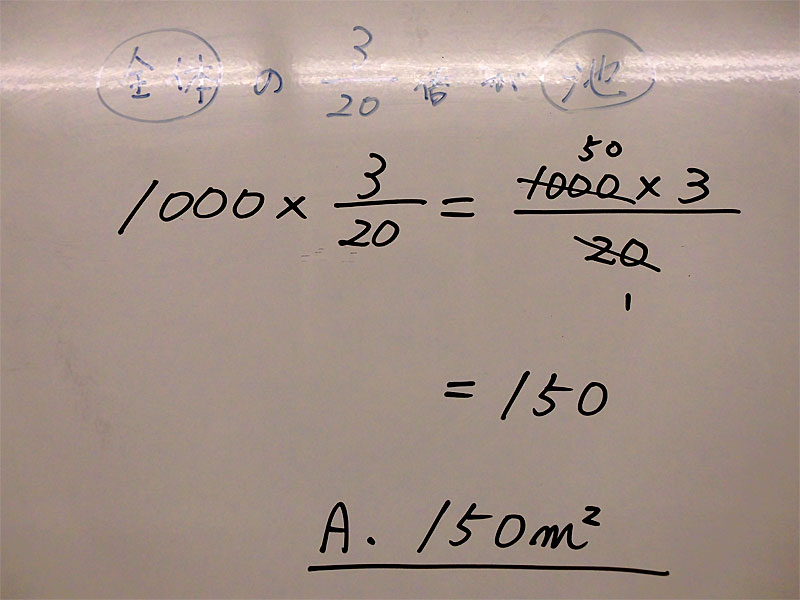 全体の 3/20 倍が 池
1000 × 3/20 = 1000 × 3 / 20
50
1
= 150
A. 150m²